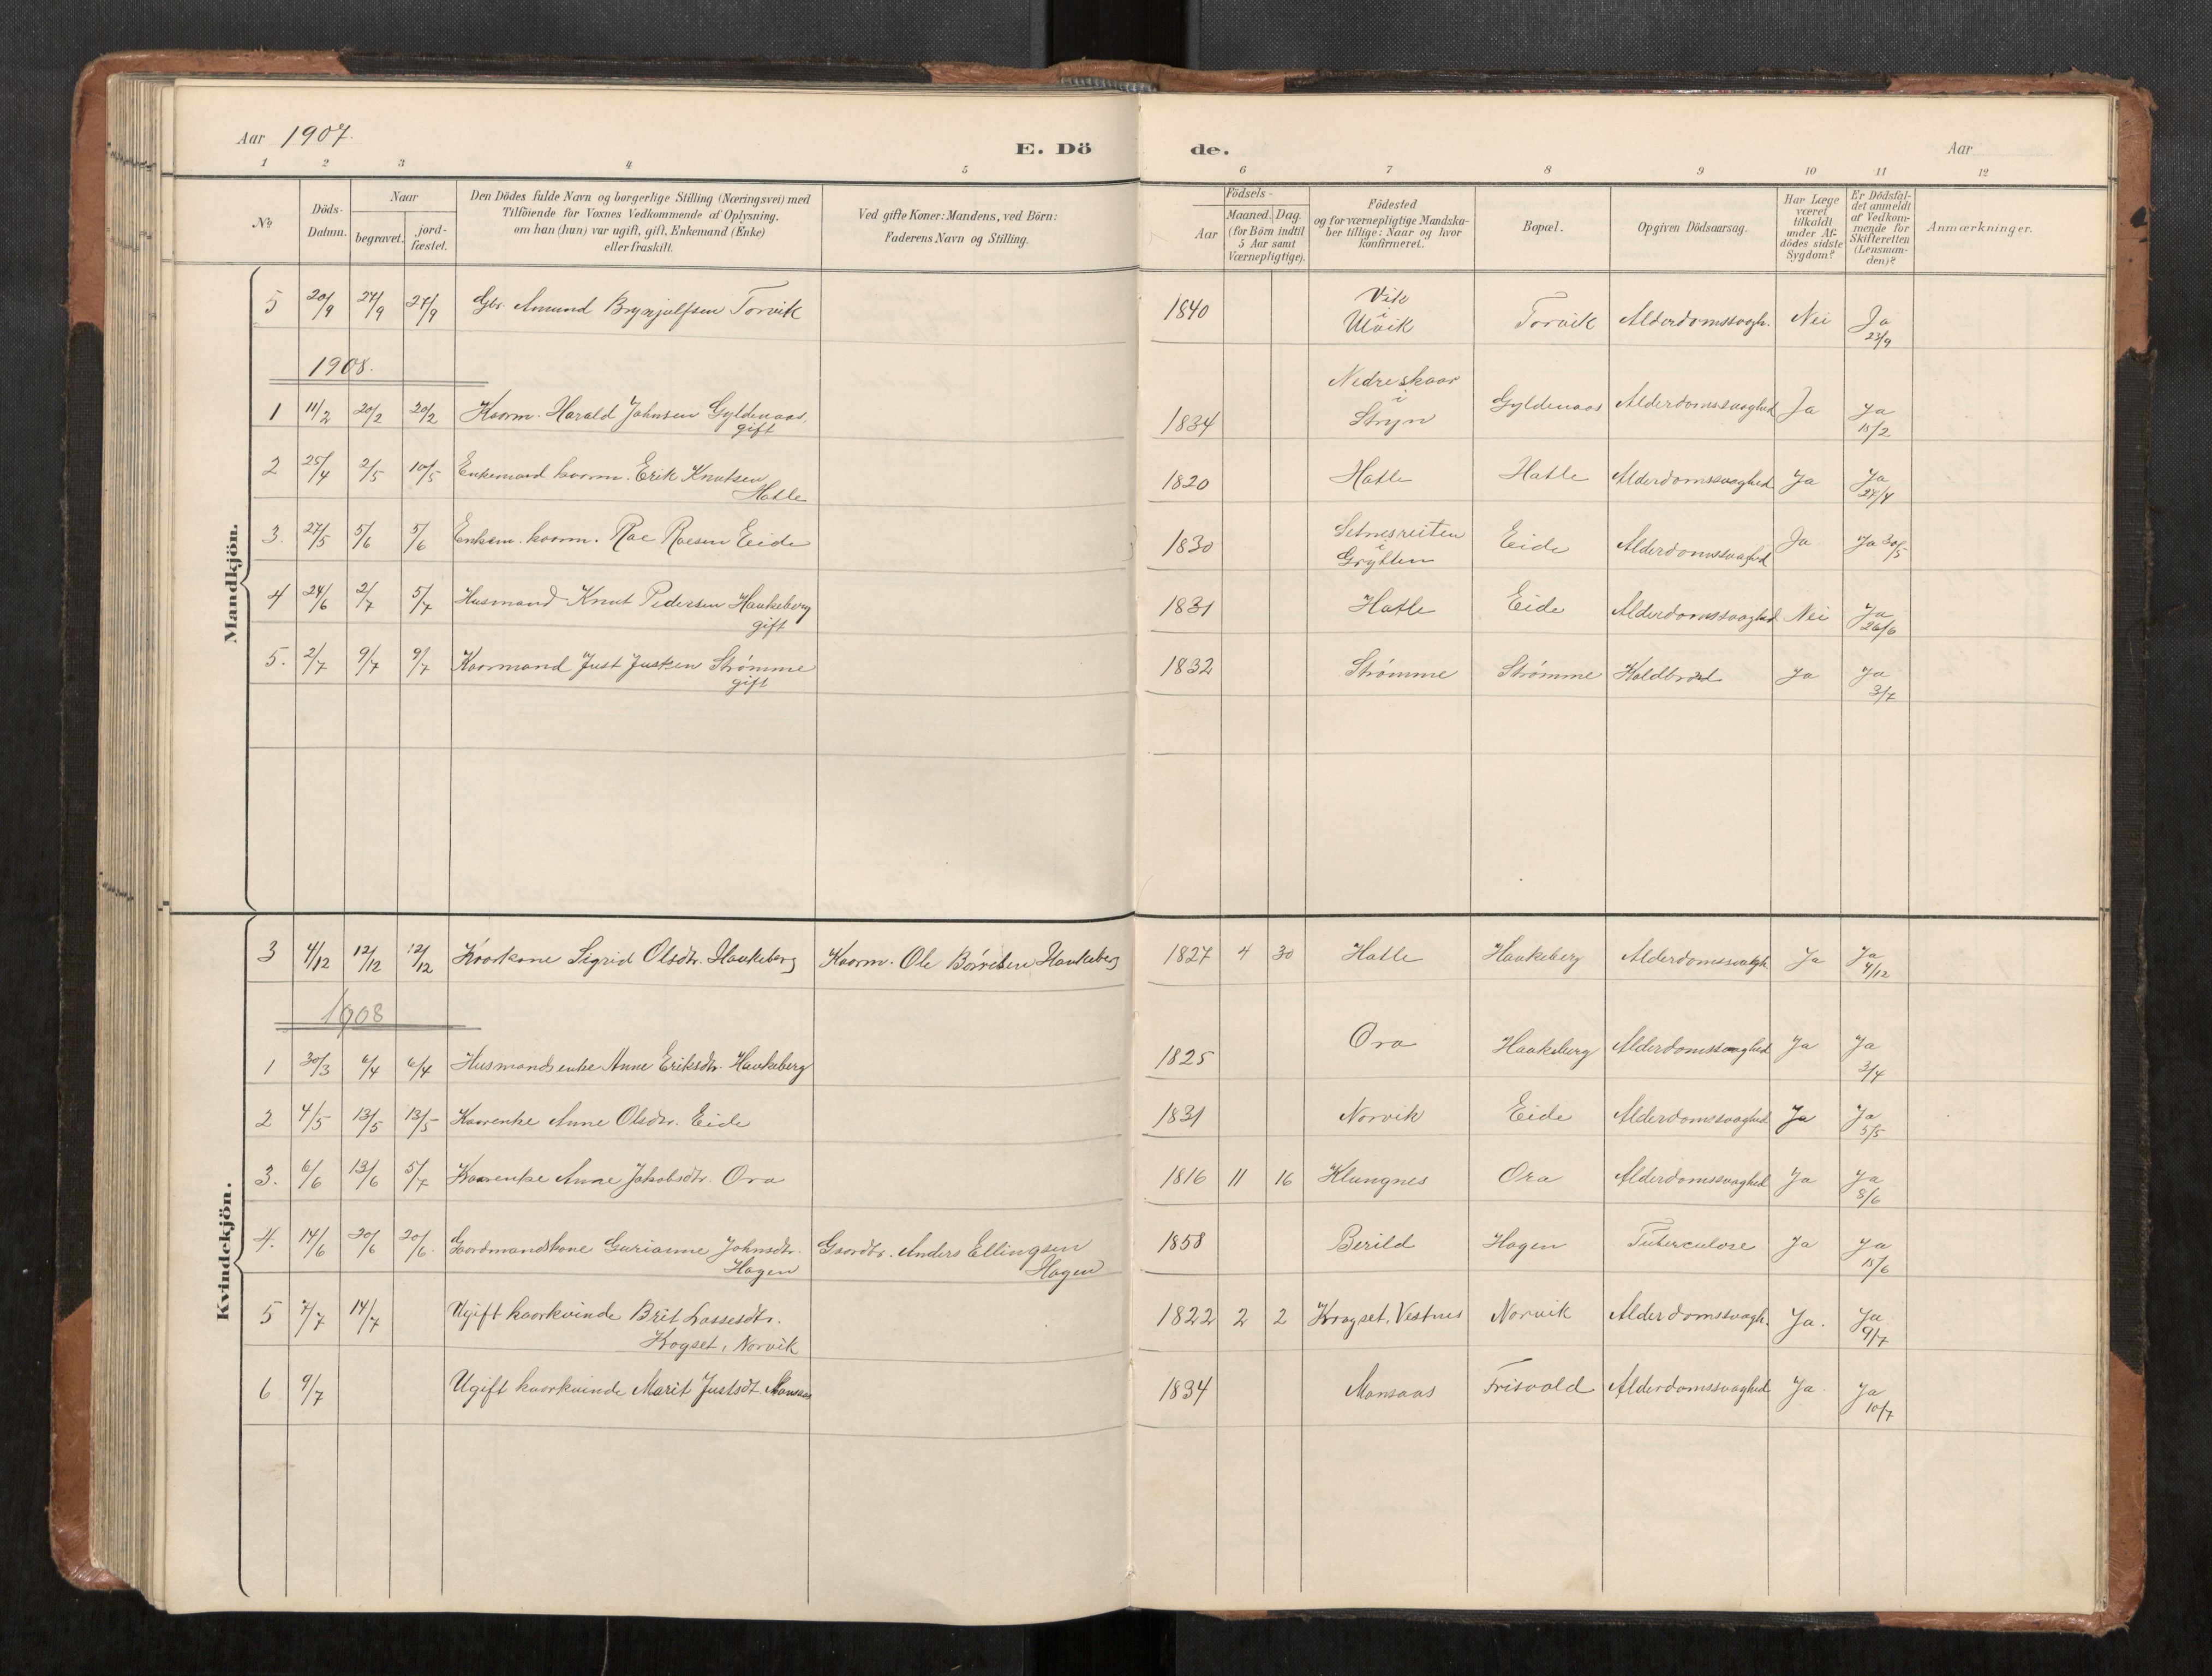 Aar 1907.
E. Dö
de.
Aar
1 2 3 4 5 6 7 8 9 10 11 12
№
Döds-Datum.
Naar
begravet.
jord-fæstet.
Den Dödes fulde Navn og borgerlige Stilling (Næringsvei) med
Tilföiende for Voxnes Vedkommende af Oplysning,
om han (hun) var ugift, gift, Enkemand (Enke)
eller fraskilt.
Ved gifte Koner: Mandens, ved Börn:
Faderens Navn og Stilling.
Födsels-
Aar
Maaned. Dag.
(for Börn indtil
5 Aar samt
Værnepligtige).
Födested
og for værnepligtige Mandska-
ber tillige: Naar og hvor
konfirmeret.
Bopæl.
Opgiven Dödsaarsag.
Har Læge
været
tilkaldt
under Af-
dödes sidste
Sygdom?
Er Dödsfal-
det anmeldt
af Vedkom-
mende for
Skifteretten
(Lensman-
den)?
Anmærkninger.
Mandkjön.
5 20/9 27/9 27/9 Gbr. Amund Brynjulfsen Torvik 1840 Vik i Ulvik Torvik Alderdomssvagh. Nei Ja 23/9
1908.
1 11/2 20/2 20/2 Kaarm. Harald Johnsen Gyldenaas, gift 1834 Nedreskaar i Stryn Gyldenaas Alderdomssvaghed Ja Ja 15/2
2 25/4 2/5 10/5 Enkemand kaarm. Erik Knutsen Hatle 1820 Hatle Hatle Alderdomssvaghed Ja Ja 27/4
3. 27/5 5/6 5/6 Enkem. kaarm. Roe Roesen Eide 1830 Setnesreiten i Grytten Eide Alderdomssvaghed Ja Ja 30/5
4 24/6 2/7 5/7 Husmand Knut Pedersen Haukeberg gift 1831 Hatle Eide Alderdomssvaghed Nei Ja 26/6
5. 2/7 9/7 9/7 Kaarmand Just Justsen Strømme gift 1832 Strømme Strømme Koldbrand Ja Ja 3/7
Kvindekjön.
3 4/12 12/12 12/12 Kaarkone Sigrid Olsdtr. Haukeberg Kaarm. Ole Børresen Haukeberg 1827 4 30 Hatle Haukeberg Alderdomssvagh. Ja Ja 4/12
1908
1 30/3 6/4 6/4 Husmandsenke Anne Eriksdtr. Haukeberg 1825 Ora Haukeberg Alderdomssvaghed Ja Ja 3/4
2 4/5 13/5 13/5 Kaarenke Anne Olsdtr. Eide 1831 Norvik Eide Alderdomssvaghed Ja Ja 5/5
3. 6/6 13/6 5/7 Kaarenke Anne Jakobsdtr. Ora 1816 11 16 Klungnes Ora Alderdomssvaghed Ja Ja 8/6
4. 14/6 20/6 20/6. Gaardmandskone Gurianne Johnsdtr. Hagen Gaardbr. Anders Ellingsen Hagen 1858 Berild Hagen Tuberculose Ja Ja 15/6
5 7/7 14/7 Ugift kaarkvinde Brit Lassesdtr. Kogset, Norvik 1822 2 2 Krogset, Vestnes Norvik Alderdomssvagh. Ja. Ja 9/7
6 9/7 Ugift kaarkvinde Marit Justsdt. Monsaas 1834 Monsaas Frisvold Alderdomssvaghed Ja Ja 10/7